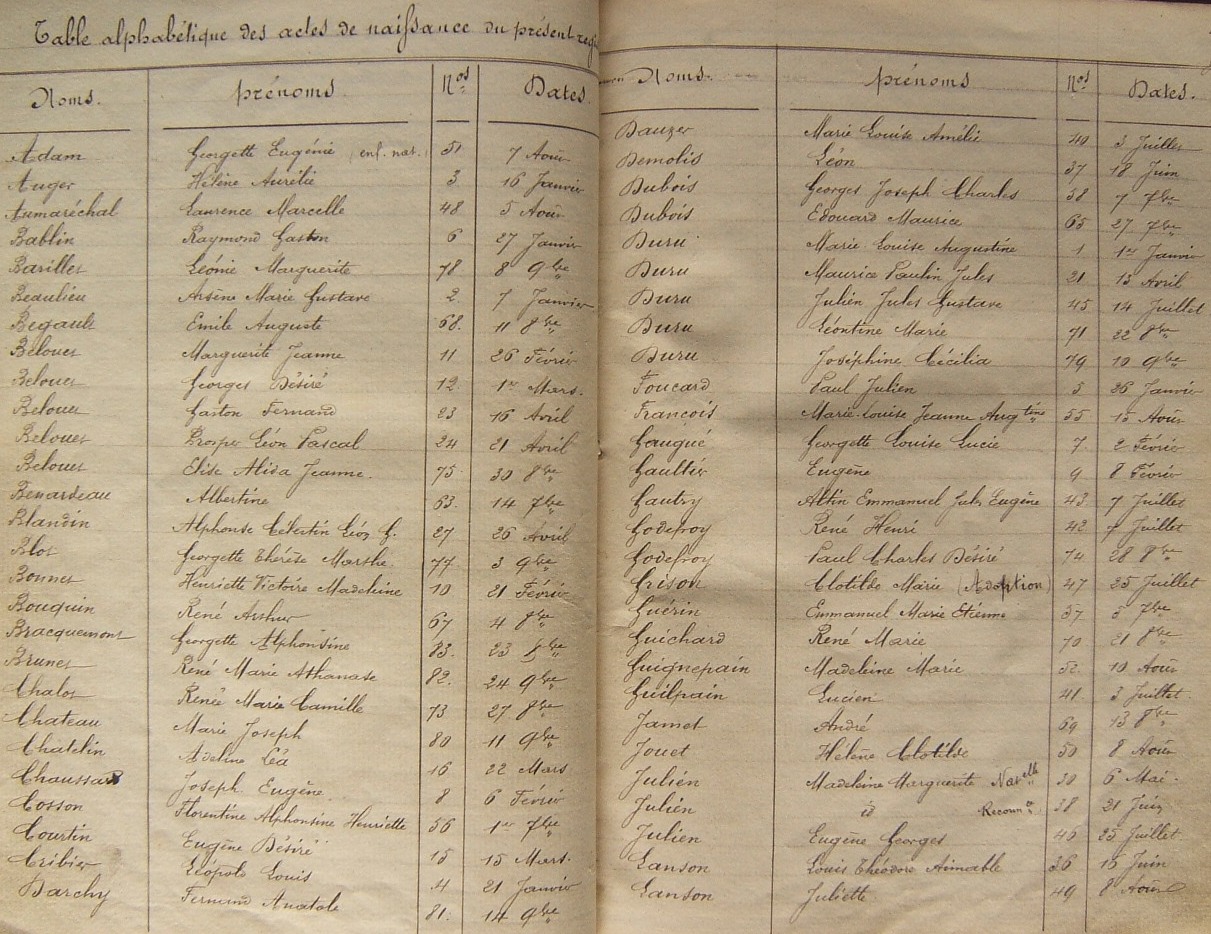 Table alphabétique des actes de naissance du présent
Noms. prénoms. Nos Dates.
Adam Georgette Eugénie (enf. nat.) 51 7 Août
Auger Hélène Aurélie 3 16 Janvier
Aumaréchal Laurence Marcelle 48 5 Août
Bablin Raymond Gaston 6 27 Janvier
Barillet Léonie Marguerite 78 8 9bre
Beaulieu Arsène Marie Gustave 2 7 Janvier
Begault Emile Auguste 68. 11 8bre
Belouet Marguerite Jeanne 11 26 Février
Belouet Georges Désiré 12. 1er Mars.
Belouet Gaston Fernand 23 16 Avril
Belouet Prosper Léon Pascal 24 21 Avril
Belouet Elise Alida Jeanne. 75. 30 8bre
Benardeau Albertine 63. 14 7bre
Blandin Alphonse Célestin Léon G. 27 26 Avril
Blot Georgette Thérèse Marthe. 77 3 9bre
Bonnet Henriette Victoire Madeleine 10 21 Février
Bouquin René Arthur 67 4 8bre
Bracquemont Georgette Alphonsine 83. 23
Brunet René Marie Athanase 82. 24 9bre
Chalot Renée Marie Camille 73 27 8bre
Chateau Marie Joseph 80 11 9bre
Chatelin Adeline Léa 16 22 Mars
Chaussard Joseph Eugène 8 6 Février
Cosson Florentine Alphonsine Henriette 56 1er 7bre
Courtin Eugène Désiré 15 15 Mars.
Cribier Léopold Louis 4 21 Janvier
Darchy Fernand Anatole 81. 14 9bre
Noms. prénoms Nos Dates.
Dauzer Marie Louise Amélie 40 3 Juillet
Demolis Léon 37 18 Juin
Dubois Georges Joseph Charles 58 7 7bre
Dubois Edouard Maurice 65 27 7bre
Duru Marie Louise Augustine 1 1er Janvier
Duru Maurice Paulin Jules 21 13 Avril
Duru Julien Jules Gustave 45 14 Juillet
Duru Léontine Marie 71 22 8bre
Duru Joséphine Cécilia 79 10 9bre
Foucard Paul Julien 5 26 Janvier
François Marie-Louise Jeanne Augtine 55 15 Août
Gaugué Georgette Louise Lucie 7. 2 Février
Gaultier Eugène 9 8 Février
Gautry Altin Emmanuel Jules Eugène 43 7 Juillet
Godefroy René Henri 42 7 Juillet
Godefroy Paul Charles Désiré 74 28 8bre
Grison Clotilde Marie (Adoption) 47 25 Juillet
Guérin Emmanuel Marie Etienne 57 5 7bre
Guichard René Marie 70 21 8bre
Guignepain Madeleine Marie 52. 10 Août
Guilpain Lucien 41. 3 Juillet.
Jamet André 69 13 8bre
Jouet Hélène Clotilde 50 8 Août
Julien Madeleine Marguerite Natelle 30 6 Mai.
Julien id Reconn. 38 21 Juin
Julien Eugène Georges 46 25 Juillet
Lanson Louis Théodore Aimable 36 16 Juin
Lanson Juliette 49 8 Août